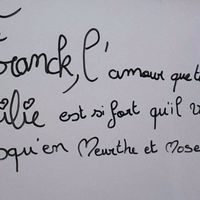 Franck, l'amour que t
ilie est si fort qu'il v
squ'en Meurthe et Mose